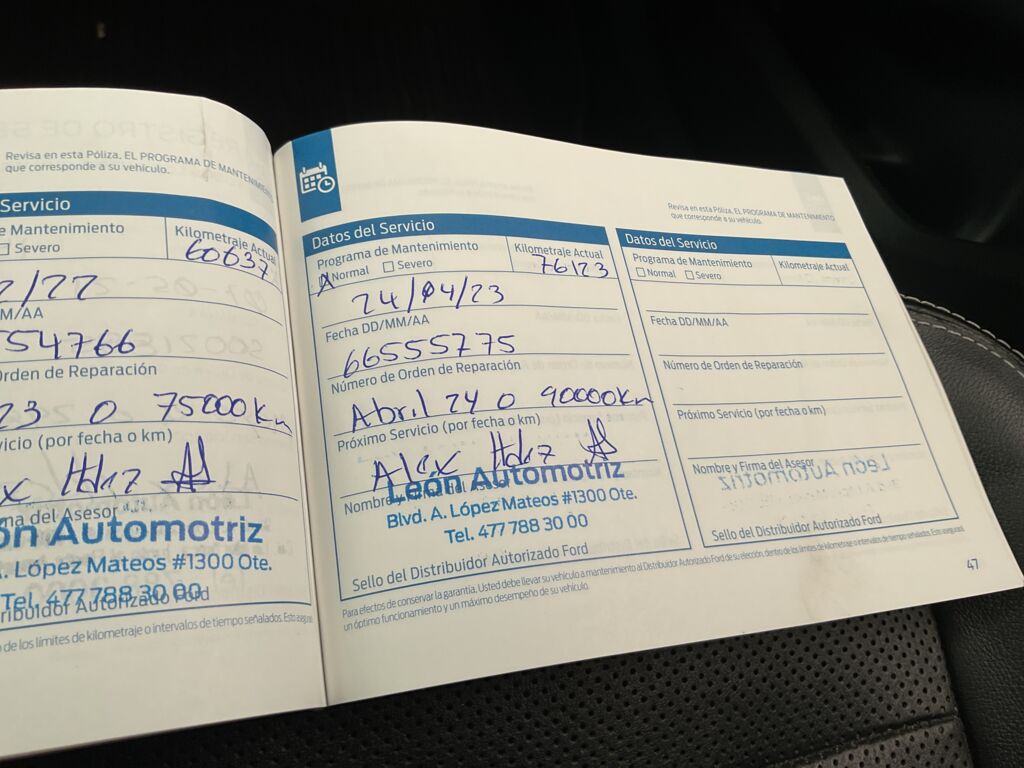 Revisa en esta Póliza, EL PROGRAMA DE MANTENIMIENTO
que corresponde a su vehículo.
Servicio
e Mantenimiento
Severo
Kilometraje Actual
60637
2/22
M/AA
554766
Orden de Reparación
23 o 75000km
vicio (por fecha o km)
x Hdez
ma del Asesor
ón Automotriz
A. López Mateos #1300 Ote.
Tel. 477 788 30 00
tribuidor Autorizado Ford
o de los límites de kilometraje o intervalos de tiempo señalados. Esto asegura
Datos del Servicio
Programa de Mantenimiento
Normal Severo
Kilometraje Actual
76123
24/04/23
Fecha DD/MM/AA
66555775
Número de Orden de Reparación
Abril 24 o 90000km
Próximo Servicio (por fecha o km)
Alex Hdez
Nombre y Firma del Asesor
León Automotriz
Blvd. A. López Mateos #1300 Ote.
Tel. 477 788 30 00
Sello del Distribuidor Autorizado Ford
Revisa en esta Póliza, EL PROGRAMA DE MANTENIMIENTO
que corresponde a su vehículo.
Datos del Servicio
Programa de Mantenimiento
Normal Severo
Kilometraje Actual
Fecha DD/MM/AA
Número de Orden de Reparación
Próximo Servicio (por fecha o km)
Nombre y Firma del Asesor
Sello del Distribuidor Autorizado Ford
Para efectos de conservar la garantía, Usted debe llevar su vehículo a mantenimiento al Distribuidor Autorizado Ford de su elección, dentro de los límites de kilometraje o intervalos de tiempo señalados. Esto asegurará
un óptimo funcionamiento y un máximo desempeño de su vehículo.
47